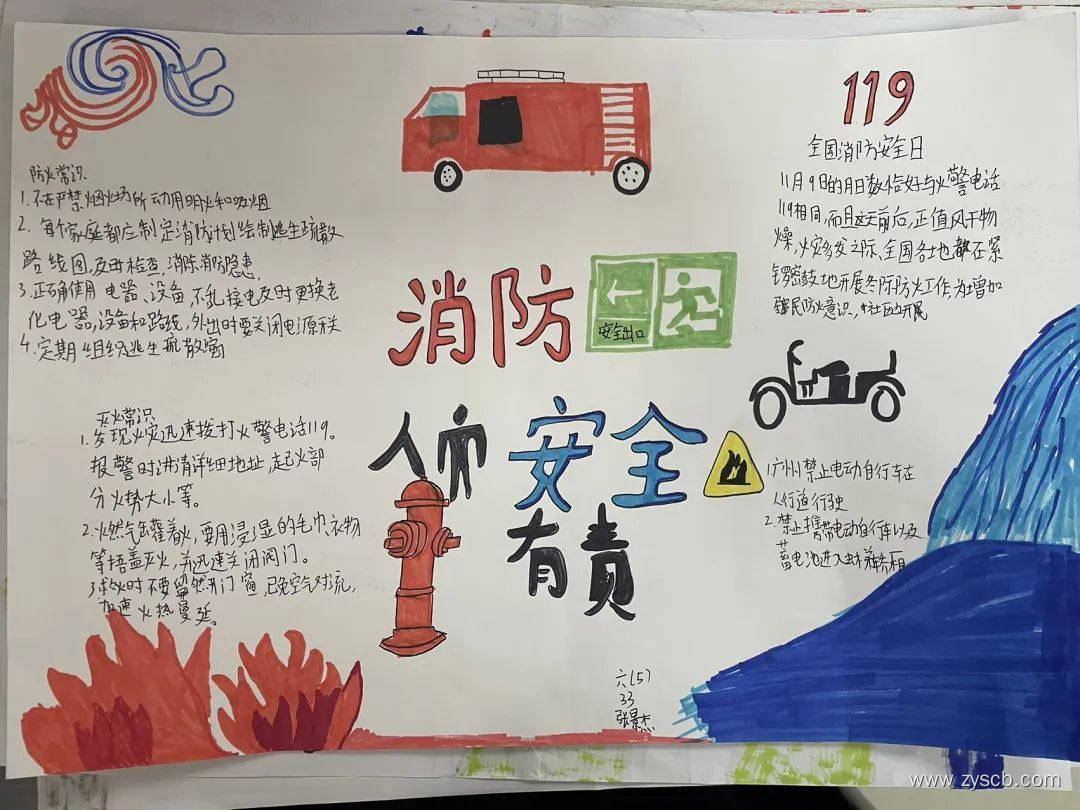 防火常识
1.不在严禁烟火场所动用明火和吸烟
2.每个家庭都应制定消防计划绘制逃生疏散
路线图,及时检查,消除消防隐患,
3.正确使用电器、设备不乱接电及时更换老
化电器,设备和路线,外出时要关闭电源开关
4.定期组织逃生疏散演
灭火常识
1.发现火灾迅速拨打火警电话119。
报警时讲清详细地址,起火部
分火势大小等。
2.燃气罐着火,要用浸湿的毛巾、衣物
等捂盖灭火,并迅速关闭阀门。
3.救火时不要贸然开门窗,已免空气对流,
加速火热蔓延。
消防
安全出口
人人
安全
有责
119
全国消防安全日
11月9日的月日数恰好与火警电话
119相同,而且这天前后,正值风干物
燥,火灾多发之际,全国各地也都在紧
锣密鼓地开展冬防防火工作,为增加
民防火意识,社区开展
1.广州禁止电动自行车在
人行道行驶
2.禁止携带电动自行车以及
蓄电池进入轿厢
六(5)
33
张景杰
www.zyscb.com